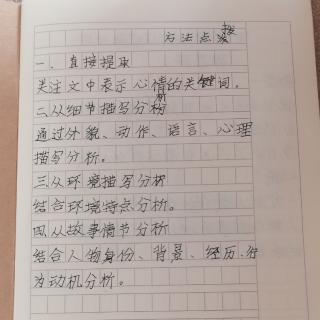 方法点拨
一. 直接提取
关注文中表示心情的关键词。
二从细节描写分析
通过外貌、动作、语言、心理
描写分析。
三从环境描写分析
结合环境特点分析。
四从故事情节分析
结合人物身份、背景、经历、行
为动机分析。